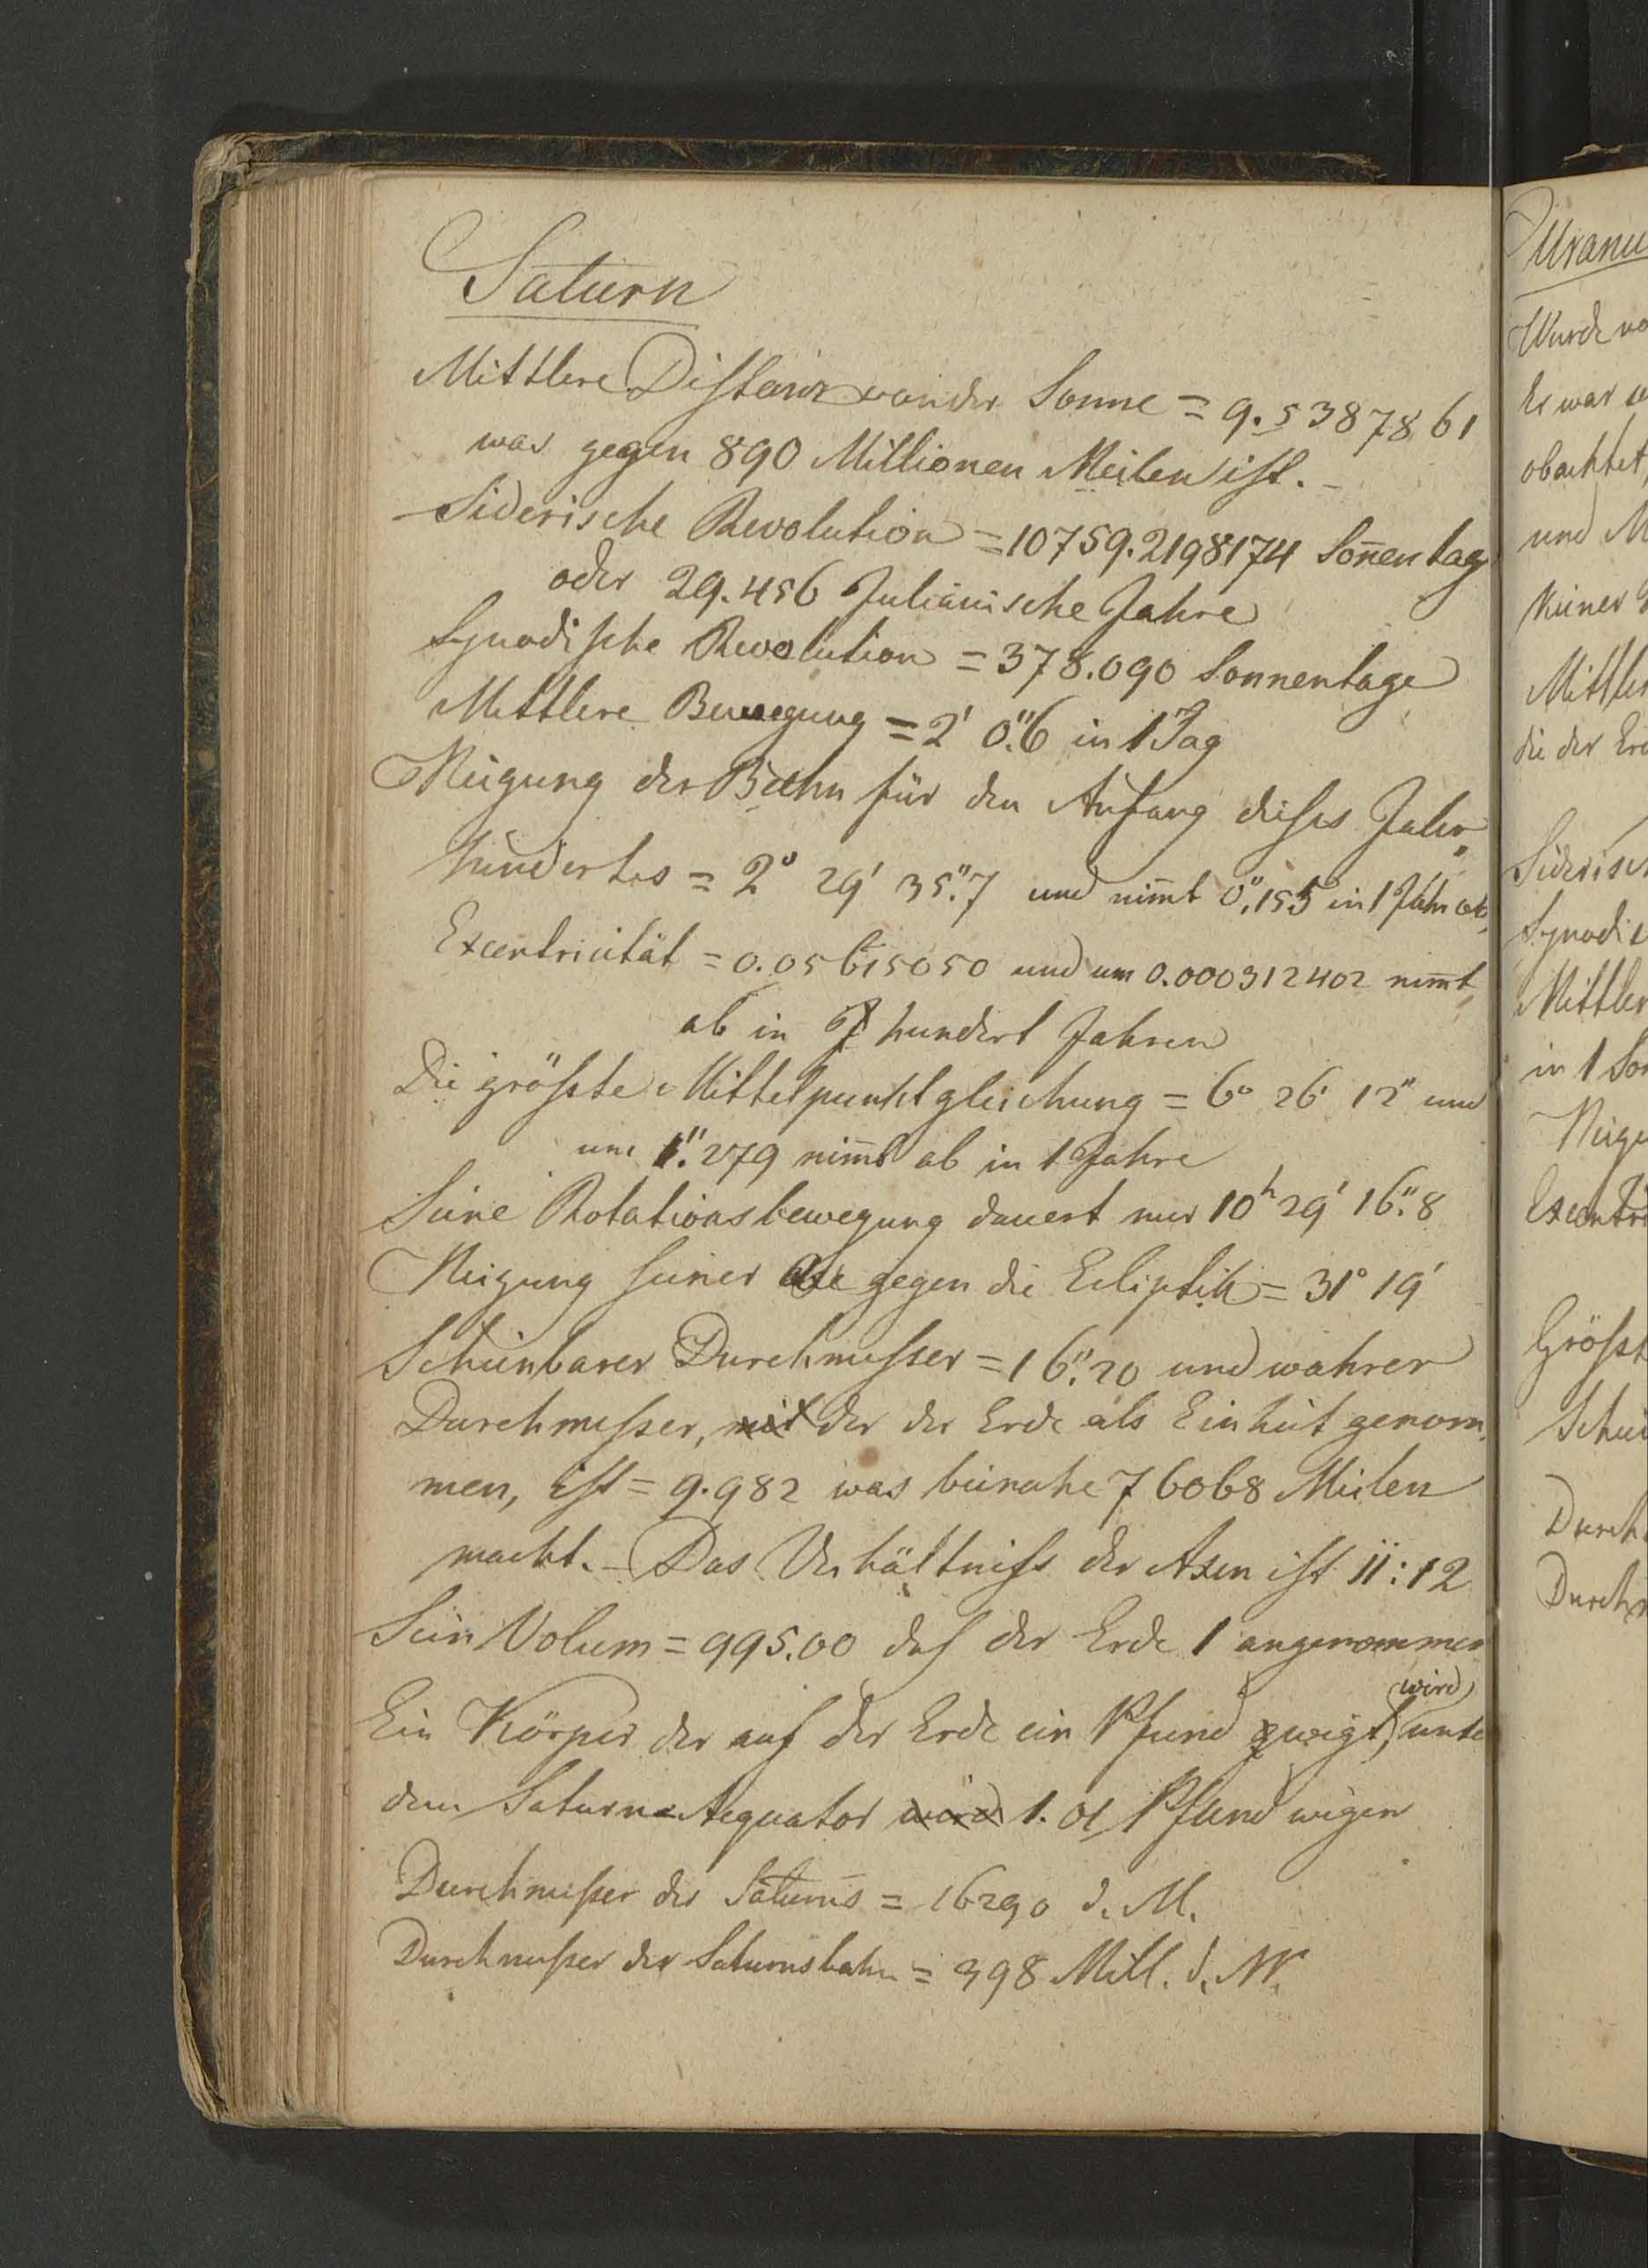 Saturn
Mittlere Distanz von der Sonne = 9.5387861
was gegen 890 Millionen Meilen ist. –
Siderische Revolution = 10759.2198174 Son̄entag
oder 29.456 Julianische Jahre
Synodische Revolution = 378.090 Sonnentage
Mittlere Bewegung = 2' 0".6 in 1 Tag
Neigung der Bahn für den Anfang dieses Jahr„
hundertes = 2° 29' 35".7 und nim̄t 0".155 in 1 Jahr ab,
Excentricität = 0.05615050 und um 0.000312402 nim̄t
ab in hundert Jahren
Die größte Mittelpunktgleichung = 6° 26' 12" und
um 1".279 nim̄t ab in 1 Jahre
Seine Rotationsbewegung dauert nur 10h 29' 16".8
Neigung seiner Axe gegen die Ecliptik = 31° 19'
Scheinbarer Durchmesser = 16".20 und wahrer
Durchmesser, mit der der Erde als Einheit genom„
men, ist = 9.982 was beinahe 76068 Meilen
macht. – Das Verhältniss der Axen ist 11 : 12
Sein Volum = 995.00 das der Erde 1 angenommen
wird
Ein Körper der auf der Erde ein Pfund wiegt, unte
dem Saturns Aequator wird 1.01 Pfund wiegen
Durchmesser des Saturns = 16290 d. M.
Durchmesser der Saturnsbahn = 398 Mill. d. M.
Uranu
Wurde vo
Er war
obachtet,
und M
keiner
Mittler
die der Erd
Siderisch
Synodi
Mittler
in 1 Son
Neigu
Excentri
Größt
Schei
Durch
Durchm